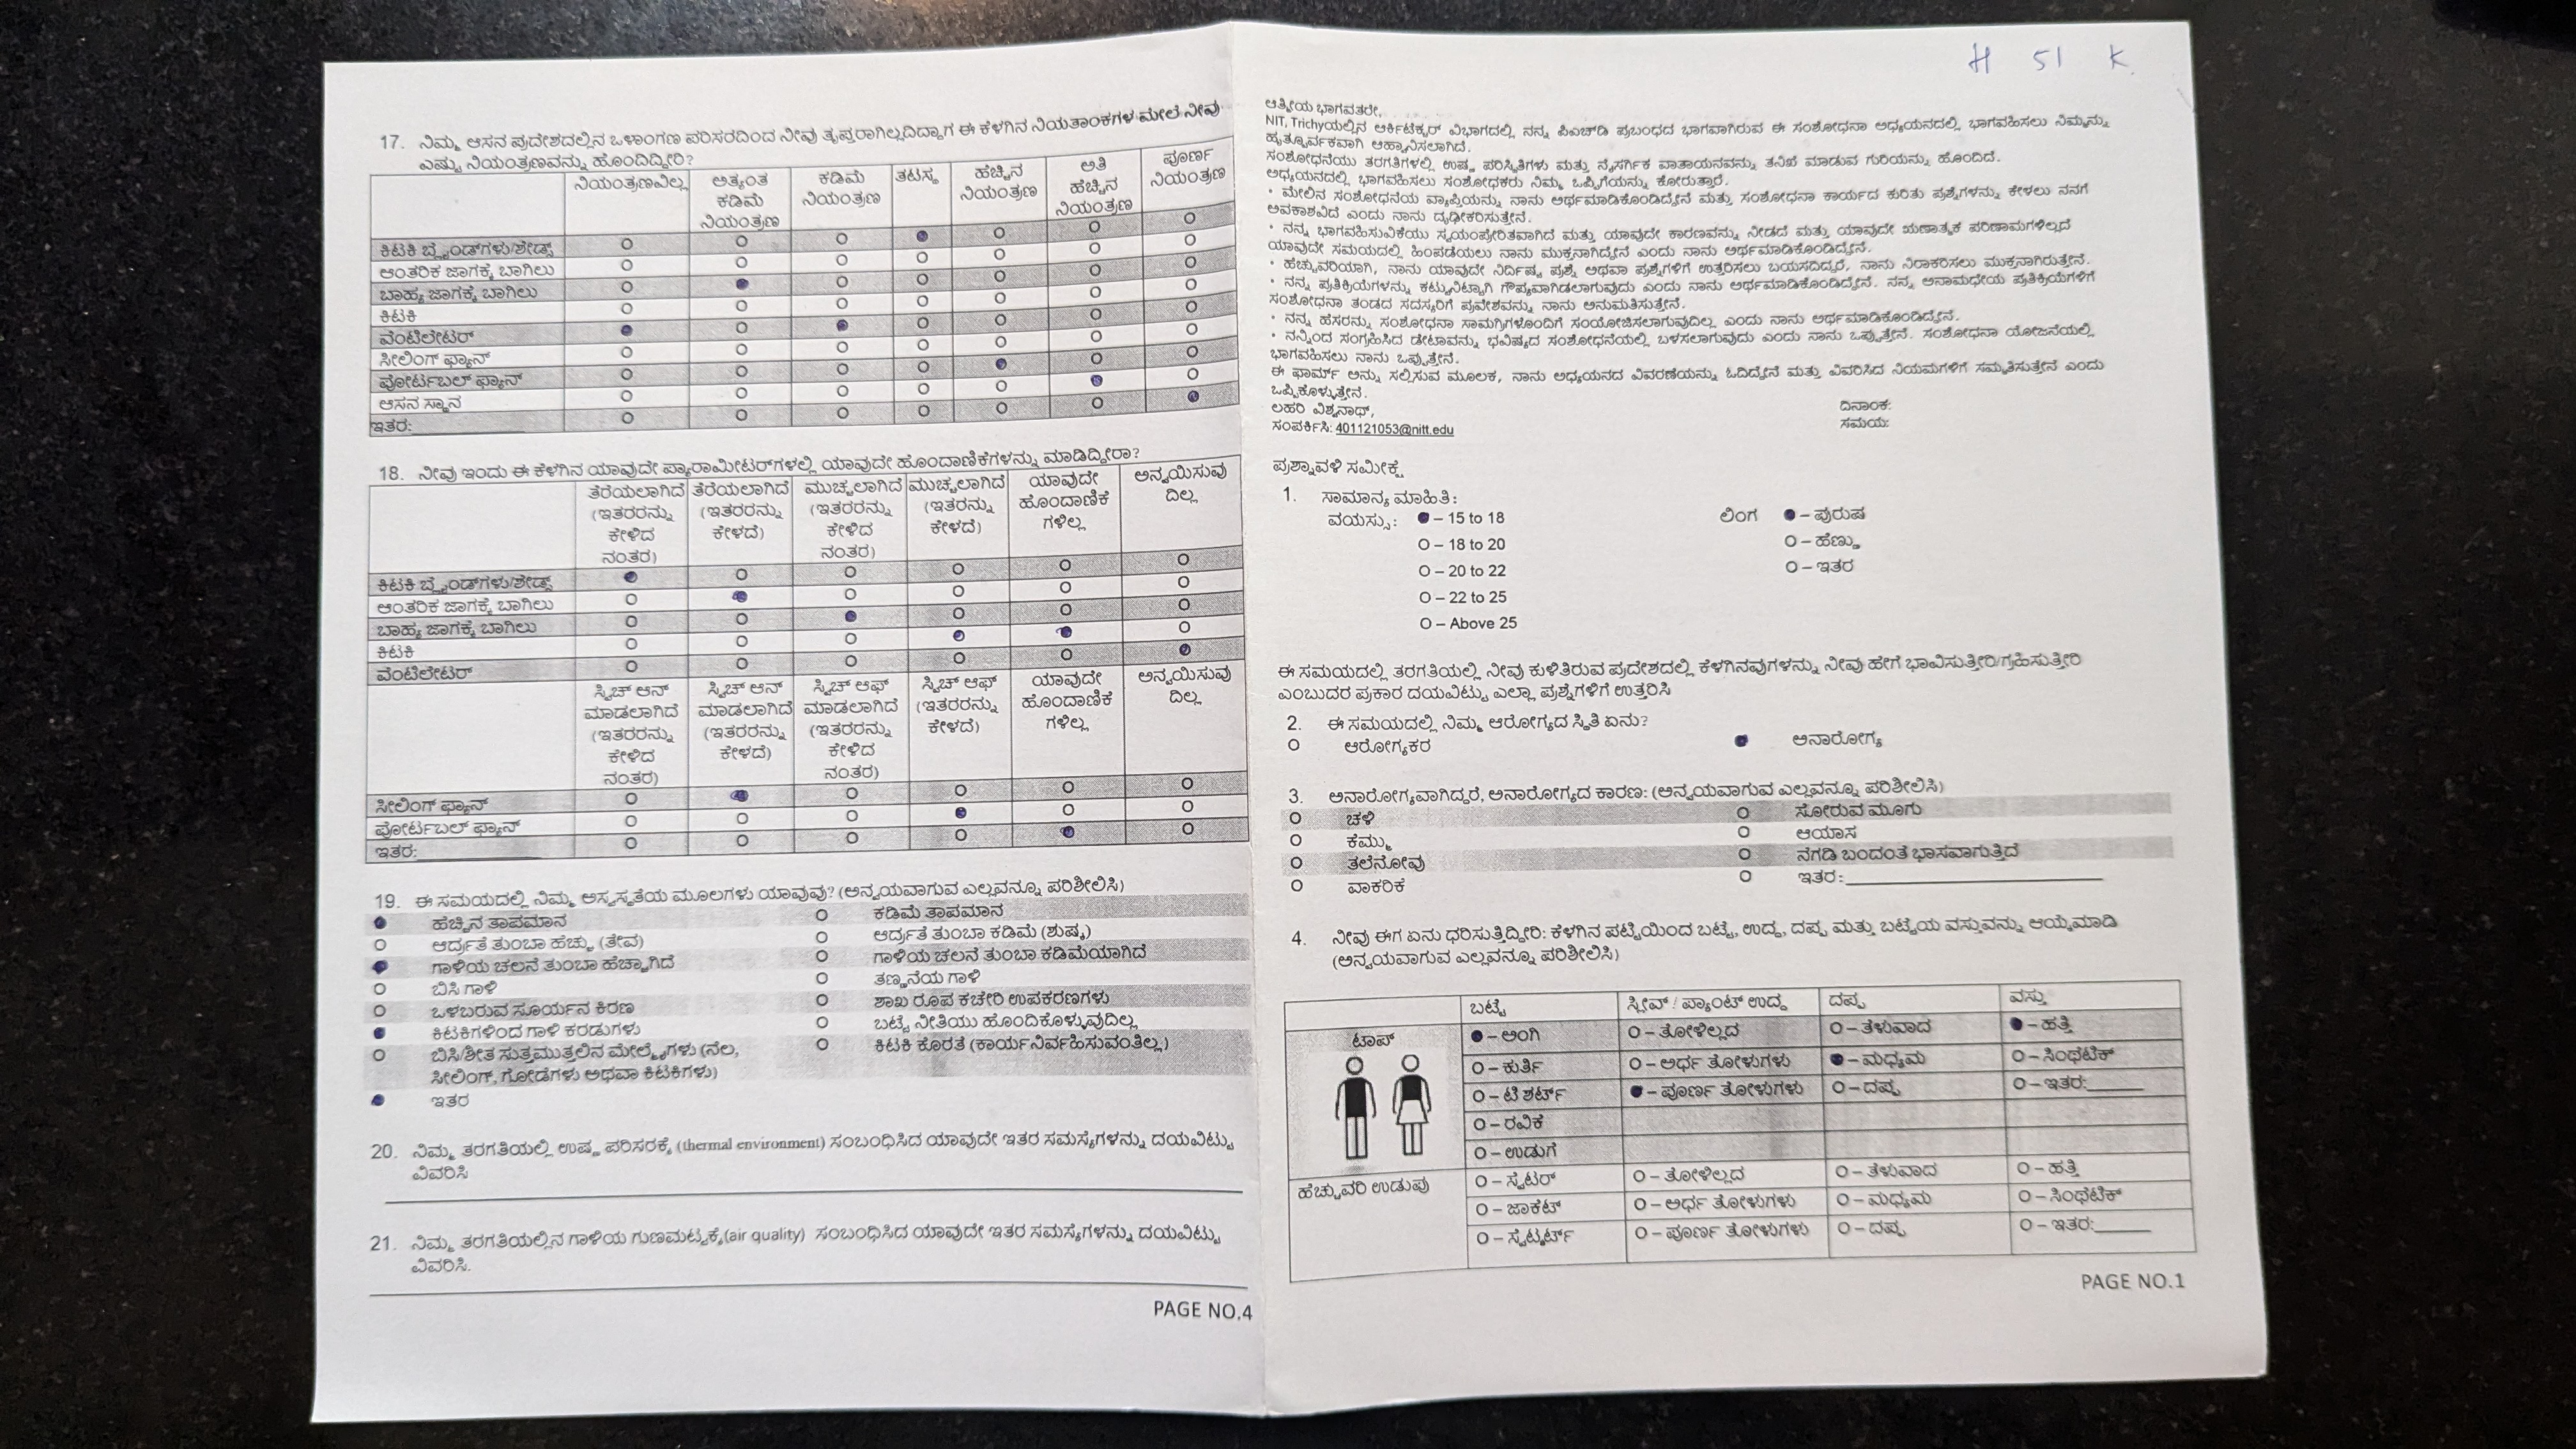 17. ನಿಮ್ಮ ಆಸನ ಪ್ರದೇಶದಲ್ಲಿನ ಒಳಾಂಗಣ ಪರಿಸರದಿಂದ ನೀವು ತೃಪ್ತರಾಗಿಲ್ಲದಿದ್ದಾಗ ಈ ಕೆಳಗಿನ ನಿಯತಾಂಕಗಳ ಮೇಲೆ ನೀವು
ಎಷ್ಟು ನಿಯಂತ್ರಣವನ್ನು ಹೊಂದಿದ್ದೀರಿ?
ನಿಯಂತ್ರಣವಿಲ್ಲ ಅತ್ಯಂತ ಕಡಿಮೆ ನಿಯಂತ್ರಣ ಕಡಿಮೆ ನಿಯಂತ್ರಣ ತಟಸ್ಥ ಹೆಚ್ಚಿನ ನಿಯಂತ್ರಣ ಅತಿ ಹೆಚ್ಚಿನ ನಿಯಂತ್ರಣ ಪೂರ್ಣ ನಿಯಂತ್ರಣ
ಕಿಟಕಿ ಬ್ಲೈಂಡ್‌ಗಳು/ಶೇಡ್ಸ್
ಆಂತರಿಕ ಜಾಗಕ್ಕೆ ಬಾಗಿಲು
ಬಾಹ್ಯ ಜಾಗಕ್ಕೆ ಬಾಗಿಲು
ಕಿಟಕಿ
ವೆಂಟಿಲೇಟರ್
ಸೀಲಿಂಗ್ ಫ್ಯಾನ್
ಪೋರ್ಟಬಲ್ ಫ್ಯಾನ್
ಆಸನ ಸ್ಥಾನ
ಇತರ:
18. ನೀವು ಇಂದು ಈ ಕೆಳಗಿನ ಯಾವುದೇ ಪ್ಯಾರಾಮೀಟರ್‌ಗಳಲ್ಲಿ ಯಾವುದೇ ಹೊಂದಾಣಿಕೆಗಳನ್ನು ಮಾಡಿದ್ದೀರಾ?
ತೆರೆಯಲಾಗಿದೆ (ಇತರರನ್ನು ಕೇಳಿದ ನಂತರ) ತೆರೆಯಲಾಗಿದೆ (ಇತರರನ್ನು ಕೇಳದೆ) ಮುಚ್ಚಲಾಗಿದೆ (ಇತರರನ್ನು ಕೇಳಿದ ನಂತರ) ಮುಚ್ಚಲಾಗಿದೆ (ಇತರರನ್ನು ಕೇಳದೆ) ಯಾವುದೇ ಹೊಂದಾಣಿಕೆ ಗಳಿಲ್ಲ ಅನ್ವಯಿಸುವು ದಿಲ್ಲ
ಕಿಟಕಿ ಬ್ಲೈಂಡ್‌ಗಳು/ಶೇಡ್ಸ್
ಆಂತರಿಕ ಜಾಗಕ್ಕೆ ಬಾಗಿಲು
ಬಾಹ್ಯ ಜಾಗಕ್ಕೆ ಬಾಗಿಲು
ಕಿಟಕಿ
ವೆಂಟಿಲೇಟರ್
ಸ್ವಿಚ್ ಆನ್ ಮಾಡಲಾಗಿದೆ (ಇತರರನ್ನು ಕೇಳಿದ ನಂತರ) ಸ್ವಿಚ್ ಆನ್ ಮಾಡಲಾಗಿದೆ (ಇತರರನ್ನು ಕೇಳದೆ) ಸ್ವಿಚ್ ಆಫ್ ಮಾಡಲಾಗಿದೆ (ಇತರರನ್ನು ಕೇಳಿದ ನಂತರ) ಸ್ವಿಚ್ ಆಫ್ (ಇತರರನ್ನು ಕೇಳದೆ) ಯಾವುದೇ ಹೊಂದಾಣಿಕೆ ಗಳಿಲ್ಲ ಅನ್ವಯಿಸುವು ದಿಲ್ಲ
ಸೀಲಿಂಗ್ ಫ್ಯಾನ್
ಪೋರ್ಟಬಲ್ ಫ್ಯಾನ್
ಇತರ:
19. ಈ ಸಮಯದಲ್ಲಿ ನಿಮ್ಮ ಅಸ್ವಸ್ಥತೆಯ ಮೂಲಗಳು ಯಾವುವು? (ಅನ್ವಯವಾಗುವ ಎಲ್ಲವನ್ನೂ ಪರಿಶೀಲಿಸಿ)
ಹೆಚ್ಚಿನ ತಾಪಮಾನ ಕಡಿಮೆ ತಾಪಮಾನ
ಆರ್ದ್ರತೆ ತುಂಬಾ ಹೆಚ್ಚು (ತೇವ) ಆರ್ದ್ರತೆ ತುಂಬಾ ಕಡಿಮೆ (ಶುಷ್ಕ)
ಗಾಳಿಯ ಚಲನೆ ತುಂಬಾ ಹೆಚ್ಚಾಗಿದೆ ಗಾಳಿಯ ಚಲನೆ ತುಂಬಾ ಕಡಿಮೆಯಾಗಿದೆ
ಬಿಸಿ ಗಾಳಿ ತಣ್ಣನೆಯ ಗಾಳಿ
ಒಳಬರುವ ಸೂರ್ಯನ ಕಿರಣ ಶಾಖ ರೂಪ ಕಚೇರಿ ಉಪಕರಣಗಳು
ಕಿಟಕಿಗಳಿಂದ ಗಾಳಿ ಕರಡುಗಳು ಬಟ್ಟೆ ನೀತಿಯು ಹೊಂದಿಕೊಳ್ಳುವುದಿಲ್ಲ
ಬಿಸಿ/ಶೀತ ಸುತ್ತಮುತ್ತಲಿನ ಮೇಲ್ಮೈಗಳು (ನೆಲ, ಕಿಟಕಿ ಕೊರತೆ (ಕಾರ್ಯನಿರ್ವಹಿಸುವಂತಿಲ್ಲ)
ಸೀಲಿಂಗ್, ಗೋಡೆಗಳು ಅಥವಾ ಕಿಟಕಿಗಳು)
ಇತರ
20. ನಿಮ್ಮ ತರಗತಿಯಲ್ಲಿ ಉಷ್ಣ ಪರಿಸರಕ್ಕೆ (thermal environment) ಸಂಬಂಧಿಸಿದ ಯಾವುದೇ ಇತರ ಸಮಸ್ಯೆಗಳನ್ನು ದಯವಿಟ್ಟು
ವಿವರಿಸಿ
21. ನಿಮ್ಮ ತರಗತಿಯಲ್ಲಿನ ಗಾಳಿಯ ಗುಣಮಟ್ಟಕ್ಕೆ(air quality) ಸಂಬಂಧಿಸಿದ ಯಾವುದೇ ಇತರ ಸಮಸ್ಯೆಗಳನ್ನು ದಯವಿಟ್ಟು
ವಿವರಿಸಿ.
PAGE NO.4
H 51 K
ಆತ್ಮೀಯ ಭಾಗವತರೇ,
NIT, Trichyಯಲ್ಲಿನ ಆರ್ಕಿಟೆಕ್ಚರ್ ವಿಭಾಗದಲ್ಲಿ ನನ್ನ ಪಿಎಚ್‌ಡಿ ಪ್ರಬಂಧದ ಭಾಗವಾಗಿರುವ ಈ ಸಂಶೋಧನಾ ಅಧ್ಯಯನದಲ್ಲಿ ಭಾಗವಹಿಸಲು ನಿಮ್ಮನ್ನು
ಹೃತ್ಪೂರ್ವಕವಾಗಿ ಆಹ್ವಾನಿಸಲಾಗಿದೆ.
ಸಂಶೋಧನೆಯು ತರಗತಿಗಳಲ್ಲಿ ಉಷ್ಣ ಪರಿಸ್ಥಿತಿಗಳು ಮತ್ತು ನೈಸರ್ಗಿಕ ವಾತಾಯನವನ್ನು ತನಿಖೆ ಮಾಡುವ ಗುರಿಯನ್ನು ಹೊಂದಿದೆ.
ಅಧ್ಯಯನದಲ್ಲಿ ಭಾಗವಹಿಸಲು ಸಂಶೋಧಕರು ನಿಮ್ಮ ಒಪ್ಪಿಗೆಯನ್ನು ಕೋರುತ್ತಾರೆ.
• ಮೇಲಿನ ಸಂಶೋಧನೆಯ ವ್ಯಾಪ್ತಿಯನ್ನು ನಾನು ಅರ್ಥಮಾಡಿಕೊಂಡಿದ್ದೇನೆ ಮತ್ತು ಸಂಶೋಧನಾ ಕಾರ್ಯದ ಕುರಿತು ಪ್ರಶ್ನೆಗಳನ್ನು ಕೇಳಲು ನನಗೆ
ಅವಕಾಶವಿದೆ ಎಂದು ನಾನು ದೃಢೀಕರಿಸುತ್ತೇನೆ.
• ನನ್ನ ಭಾಗವಹಿಸುವಿಕೆಯು ಸ್ವಯಂಪ್ರೇರಿತವಾಗಿದೆ ಮತ್ತು ಯಾವುದೇ ಕಾರಣವನ್ನು ನೀಡದೆ ಮತ್ತು ಯಾವುದೇ ಋಣಾತ್ಮಕ ಪರಿಣಾಮಗಳಿಲ್ಲದೆ
ಯಾವುದೇ ಸಮಯದಲ್ಲಿ ಹಿಂಪಡೆಯಲು ನಾನು ಮುಕ್ತನಾಗಿದ್ದೇನೆ ಎಂದು ನಾನು ಅರ್ಥಮಾಡಿಕೊಂಡಿದ್ದೇನೆ.
• ಹೆಚ್ಚುವರಿಯಾಗಿ, ನಾನು ಯಾವುದೇ ನಿರ್ದಿಷ್ಟ ಪ್ರಶ್ನೆ ಅಥವಾ ಪ್ರಶ್ನೆಗಳಿಗೆ ಉತ್ತರಿಸಲು ಬಯಸದಿದ್ದರೆ, ನಾನು ನಿರಾಕರಿಸಲು ಮುಕ್ತನಾಗಿರುತ್ತೇನೆ.
• ನನ್ನ ಪ್ರತಿಕ್ರಿಯೆಗಳನ್ನು ಕಟ್ಟುನಿಟ್ಟಾಗಿ ಗೌಪ್ಯವಾಗಿಡಲಾಗುವುದು ಎಂದು ನಾನು ಅರ್ಥಮಾಡಿಕೊಂಡಿದ್ದೇನೆ. ನನ್ನ ಅನಾಮಧೇಯ ಪ್ರತಿಕ್ರಿಯೆಗಳಿಗೆ
ಸಂಶೋಧನಾ ತಂಡದ ಸದಸ್ಯರಿಗೆ ಪ್ರವೇಶವನ್ನು ನಾನು ಅನುಮತಿಸುತ್ತೇನೆ.
• ನನ್ನ ಹೆಸರನ್ನು ಸಂಶೋಧನಾ ಸಾಮಗ್ರಿಗಳೊಂದಿಗೆ ಸಂಯೋಜಿಸಲಾಗುವುದಿಲ್ಲ ಎಂದು ನಾನು ಅರ್ಥಮಾಡಿಕೊಂಡಿದ್ದೇನೆ.
• ನನ್ನಿಂದ ಸಂಗ್ರಹಿಸಿದ ಡೇಟಾವನ್ನು ಭವಿಷ್ಯದ ಸಂಶೋಧನೆಯಲ್ಲಿ ಬಳಸಲಾಗುವುದು ಎಂದು ನಾನು ಒಪ್ಪುತ್ತೇನೆ. ಸಂಶೋಧನಾ ಯೋಜನೆಯಲ್ಲಿ
ಭಾಗವಹಿಸಲು ನಾನು ಒಪ್ಪುತ್ತೇನೆ.
ಈ ಫಾರ್ಮ್ ಅನ್ನು ಸಲ್ಲಿಸುವ ಮೂಲಕ, ನಾನು ಅಧ್ಯಯನದ ವಿವರಣೆಯನ್ನು ಓದಿದ್ದೇನೆ ಮತ್ತು ವಿವರಿಸಿದ ನಿಯಮಗಳಿಗೆ ಸಮ್ಮತಿಸುತ್ತೇನೆ ಎಂದು
ಒಪ್ಪಿಕೊಳ್ಳುತ್ತೇನೆ.
ಲಹರಿ ವಿಶ್ವನಾಥ್, ದಿನಾಂಕ:
ಸಂಪರ್ಕಿಸಿ: 401121053@nitt.edu ಸಮಯ:
ಪ್ರಶ್ನಾವಳಿ ಸಮೀಕ್ಷೆ
1. ಸಾಮಾನ್ಯ ಮಾಹಿತಿ:
ವಯಸ್ಸು: – 15 to 18 ಲಿಂಗ – ಪುರುಷ
O – 18 to 20 O – ಹೆಣ್ಣು
O – 20 to 22 O – ಇತರ
O – 22 to 25
O – Above 25
ಈ ಸಮಯದಲ್ಲಿ ತರಗತಿಯಲ್ಲಿ ನೀವು ಕುಳಿತಿರುವ ಪ್ರದೇಶದಲ್ಲಿ ಕೆಳಗಿನವುಗಳನ್ನು ನೀವು ಹೇಗೆ ಭಾವಿಸುತ್ತೀರಿ/ಗ್ರಹಿಸುತ್ತೀರಿ
ಎಂಬುದರ ಪ್ರಕಾರ ದಯವಿಟ್ಟು ಎಲ್ಲಾ ಪ್ರಶ್ನೆಗಳಿಗೆ ಉತ್ತರಿಸಿ
2. ಈ ಸಮಯದಲ್ಲಿ ನಿಮ್ಮ ಆರೋಗ್ಯದ ಸ್ಥಿತಿ ಏನು?
O ಆರೋಗ್ಯಕರ ಅನಾರೋಗ್ಯ
3. ಅನಾರೋಗ್ಯವಾಗಿದ್ದರೆ, ಅನಾರೋಗ್ಯದ ಕಾರಣ: (ಅನ್ವಯವಾಗುವ ಎಲ್ಲವನ್ನೂ ಪರಿಶೀಲಿಸಿ)
O ಚಳಿ O ಸೋರುವ ಮೂಗು
O ಕೆಮ್ಮು O ಆಯಾಸ
O ತಲೆನೋವು O ನೆಗಡಿ ಬಂದಂತೆ ಭಾಸವಾಗುತ್ತಿದೆ
O ವಾಕರಿಕೆ O ಇತರ:
4. ನೀವು ಈಗ ಏನು ಧರಿಸುತ್ತಿದ್ದೀರಿ: ಕೆಳಗಿನ ಪಟ್ಟಿಯಿಂದ ಬಟ್ಟೆ, ಉದ್ದ, ದಪ್ಪ ಮತ್ತು ಬಟ್ಟೆಯ ವಸ್ತುವನ್ನು ಆಯ್ಕೆಮಾಡಿ
(ಅನ್ವಯವಾಗುವ ಎಲ್ಲವನ್ನೂ ಪರಿಶೀಲಿಸಿ)
ಬಟ್ಟೆ ಸ್ಲೀವ್ / ಪ್ಯಾಂಟ್ ಉದ್ದ ದಪ್ಪ ವಸ್ತು
ಟಾಪ್ – ಅಂಗಿ O – ತೋಳಿಲ್ಲದ O – ತೆಳುವಾದ – ಹತ್ತಿ
O – ಕುರ್ತಿ O – ಅರ್ಧ ತೋಳುಗಳು – ಮಧ್ಯಮ O – ಸಿಂಥೆಟಿಕ್
O – ಟಿ ಶರ್ಟ್ – ಪೂರ್ಣ ತೋಳುಗಳು O – ದಪ್ಪ O – ಇತರ:
O – ರವಿಕೆ
O – ಉಡುಗೆ
ಹೆಚ್ಚುವರಿ ಉಡುಪು O – ಸ್ವೆಟರ್ O – ತೋಳಿಲ್ಲದ O – ತೆಳುವಾದ O – ಹತ್ತಿ
O – ಜಾಕೆಟ್ O – ಅರ್ಧ ತೋಳುಗಳು O – ಮಧ್ಯಮ O – ಸಿಂಥೆಟಿಕ್
O – ಸ್ವೆಟ್ಶರ್ಟ್ O – ಪೂರ್ಣ ತೋಳುಗಳು O – ದಪ್ಪ O – ಇತರ:
PAGE NO.1